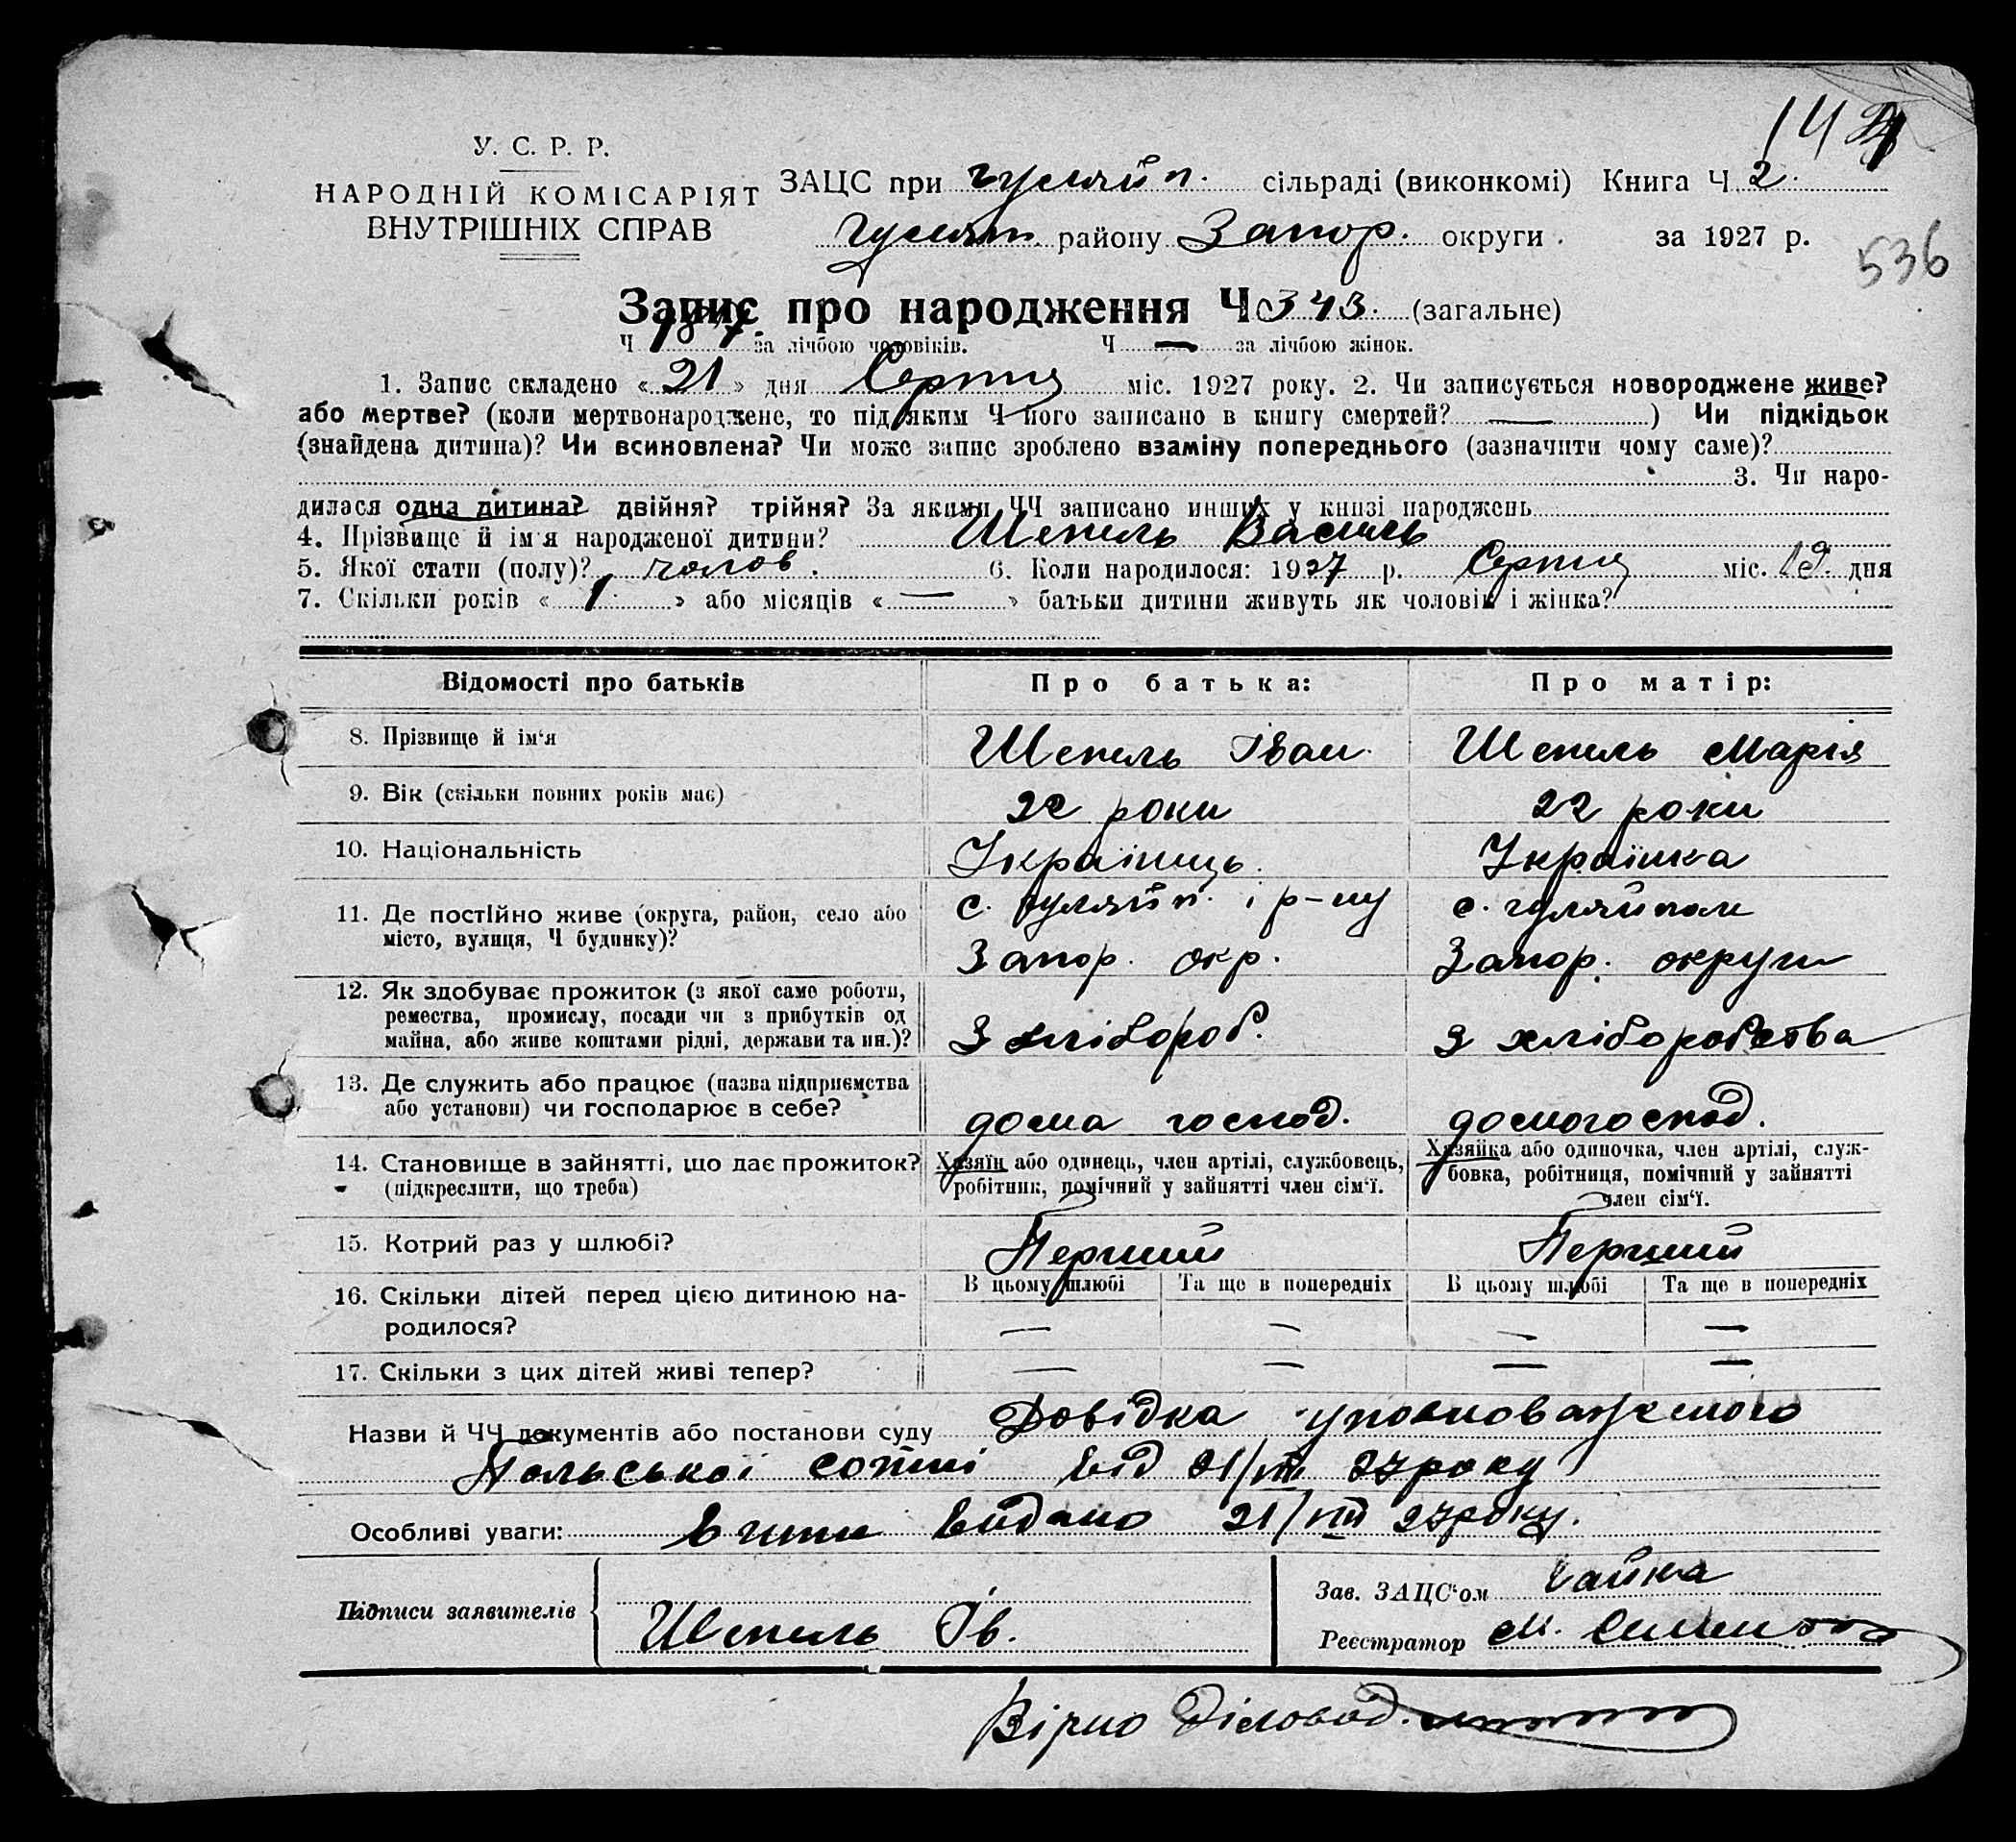 У. С. Р. Р.
НАРОДНІЙ КОМІСАРІЯТ
ВНУТРІШНІХ СПРАВ
ЗАЦС при Гуляйп. сільраді (виконкомі) Книга Ч 2.
Гуляйп. району Запор. округи. за 1927 р.
536
Запис про народження Ч 343. (загальне)
Ч 187. за лічбою чоловіків. Ч — за лічбою жінок.
1. Запис складено « 21 » дня Серпня міс. 1927 року. 2. Чи записується новороджене живе?
або мертве? (коли мертвонароджене, то під яким Ч його записано в книгу смертей? — ) Чи підкідьок
(знайдена дитина)? Чи всиновлена? Чи може запис зроблено взаміну попереднього (зазначити чому саме)?
3. Чи наро-
дилася одна дитина? двійня? трійня? За якими ЧЧ записано инших у книзі народжень
4. Прізвище й ім'я народженої дитини? Шепель Василь
5. Якої стати (полу)? чолов. 6. Коли народилося: 1927 р. Серпня міс. 19. дня
7. Скільки років « 1 » або місяців « — » батьки дитини живуть як чоловік і жінка?
Відомості про батьків Про батька: Про матір:
8. Прізвище й ім'я Шепель Іван. Шепель Марія
9. Вік (скільки повних років має) 22 роки 22 роки
10. Національність Українець. Українка
11. Де постійно живе (округа, район, село або
місто, вулиця, Ч будинку)? с. Гуляйп. і р-ну с. Гуляйполе
Запор. окр. Запор. округи
12. Як здобуває прожиток (з якої само роботи,
ремества, промислу, посади чи з прибутків од
майна, або живе коштами рідні, держави та ин.)? З хлібороб. З хліборобства
13. Де служить або працює (назва підприємства
або установи) чи господарює в себе? дома господ. домогоспод.
14. Становище в зайнятті, що дає прожиток?
(підкреслити, що треба)
Хазяїн або одинець, член артілі, службовець,
робітник, помічний у зайнятті член сім'ї.
Хазяйка або одиночка, член артілі, служ-
бовка, робітниця, помічний у зайнятті
член сім'ї.
15. Котрий раз у шлюбі? Перший Перший
16. Скільки дітей перед цією дитиною на-
родилося?
В цьому шлюбі Та ще в попередніх В цьому шлюбі Та ще в попередніх
— — — —
17. Скільки з цих дітей живі тепер? — — — —
Назви й ЧЧ документів або постанови суду Довідка уповноваженого
Польської сотні від 21/VIII 27 року
Особливі уваги: Витяг видано 21/VIII 27 року.
Підписи заявителів Шепель Ів.
Зав. ЗАЦС'ом Чайка
Реєстратор М.
Вірно Діловод.